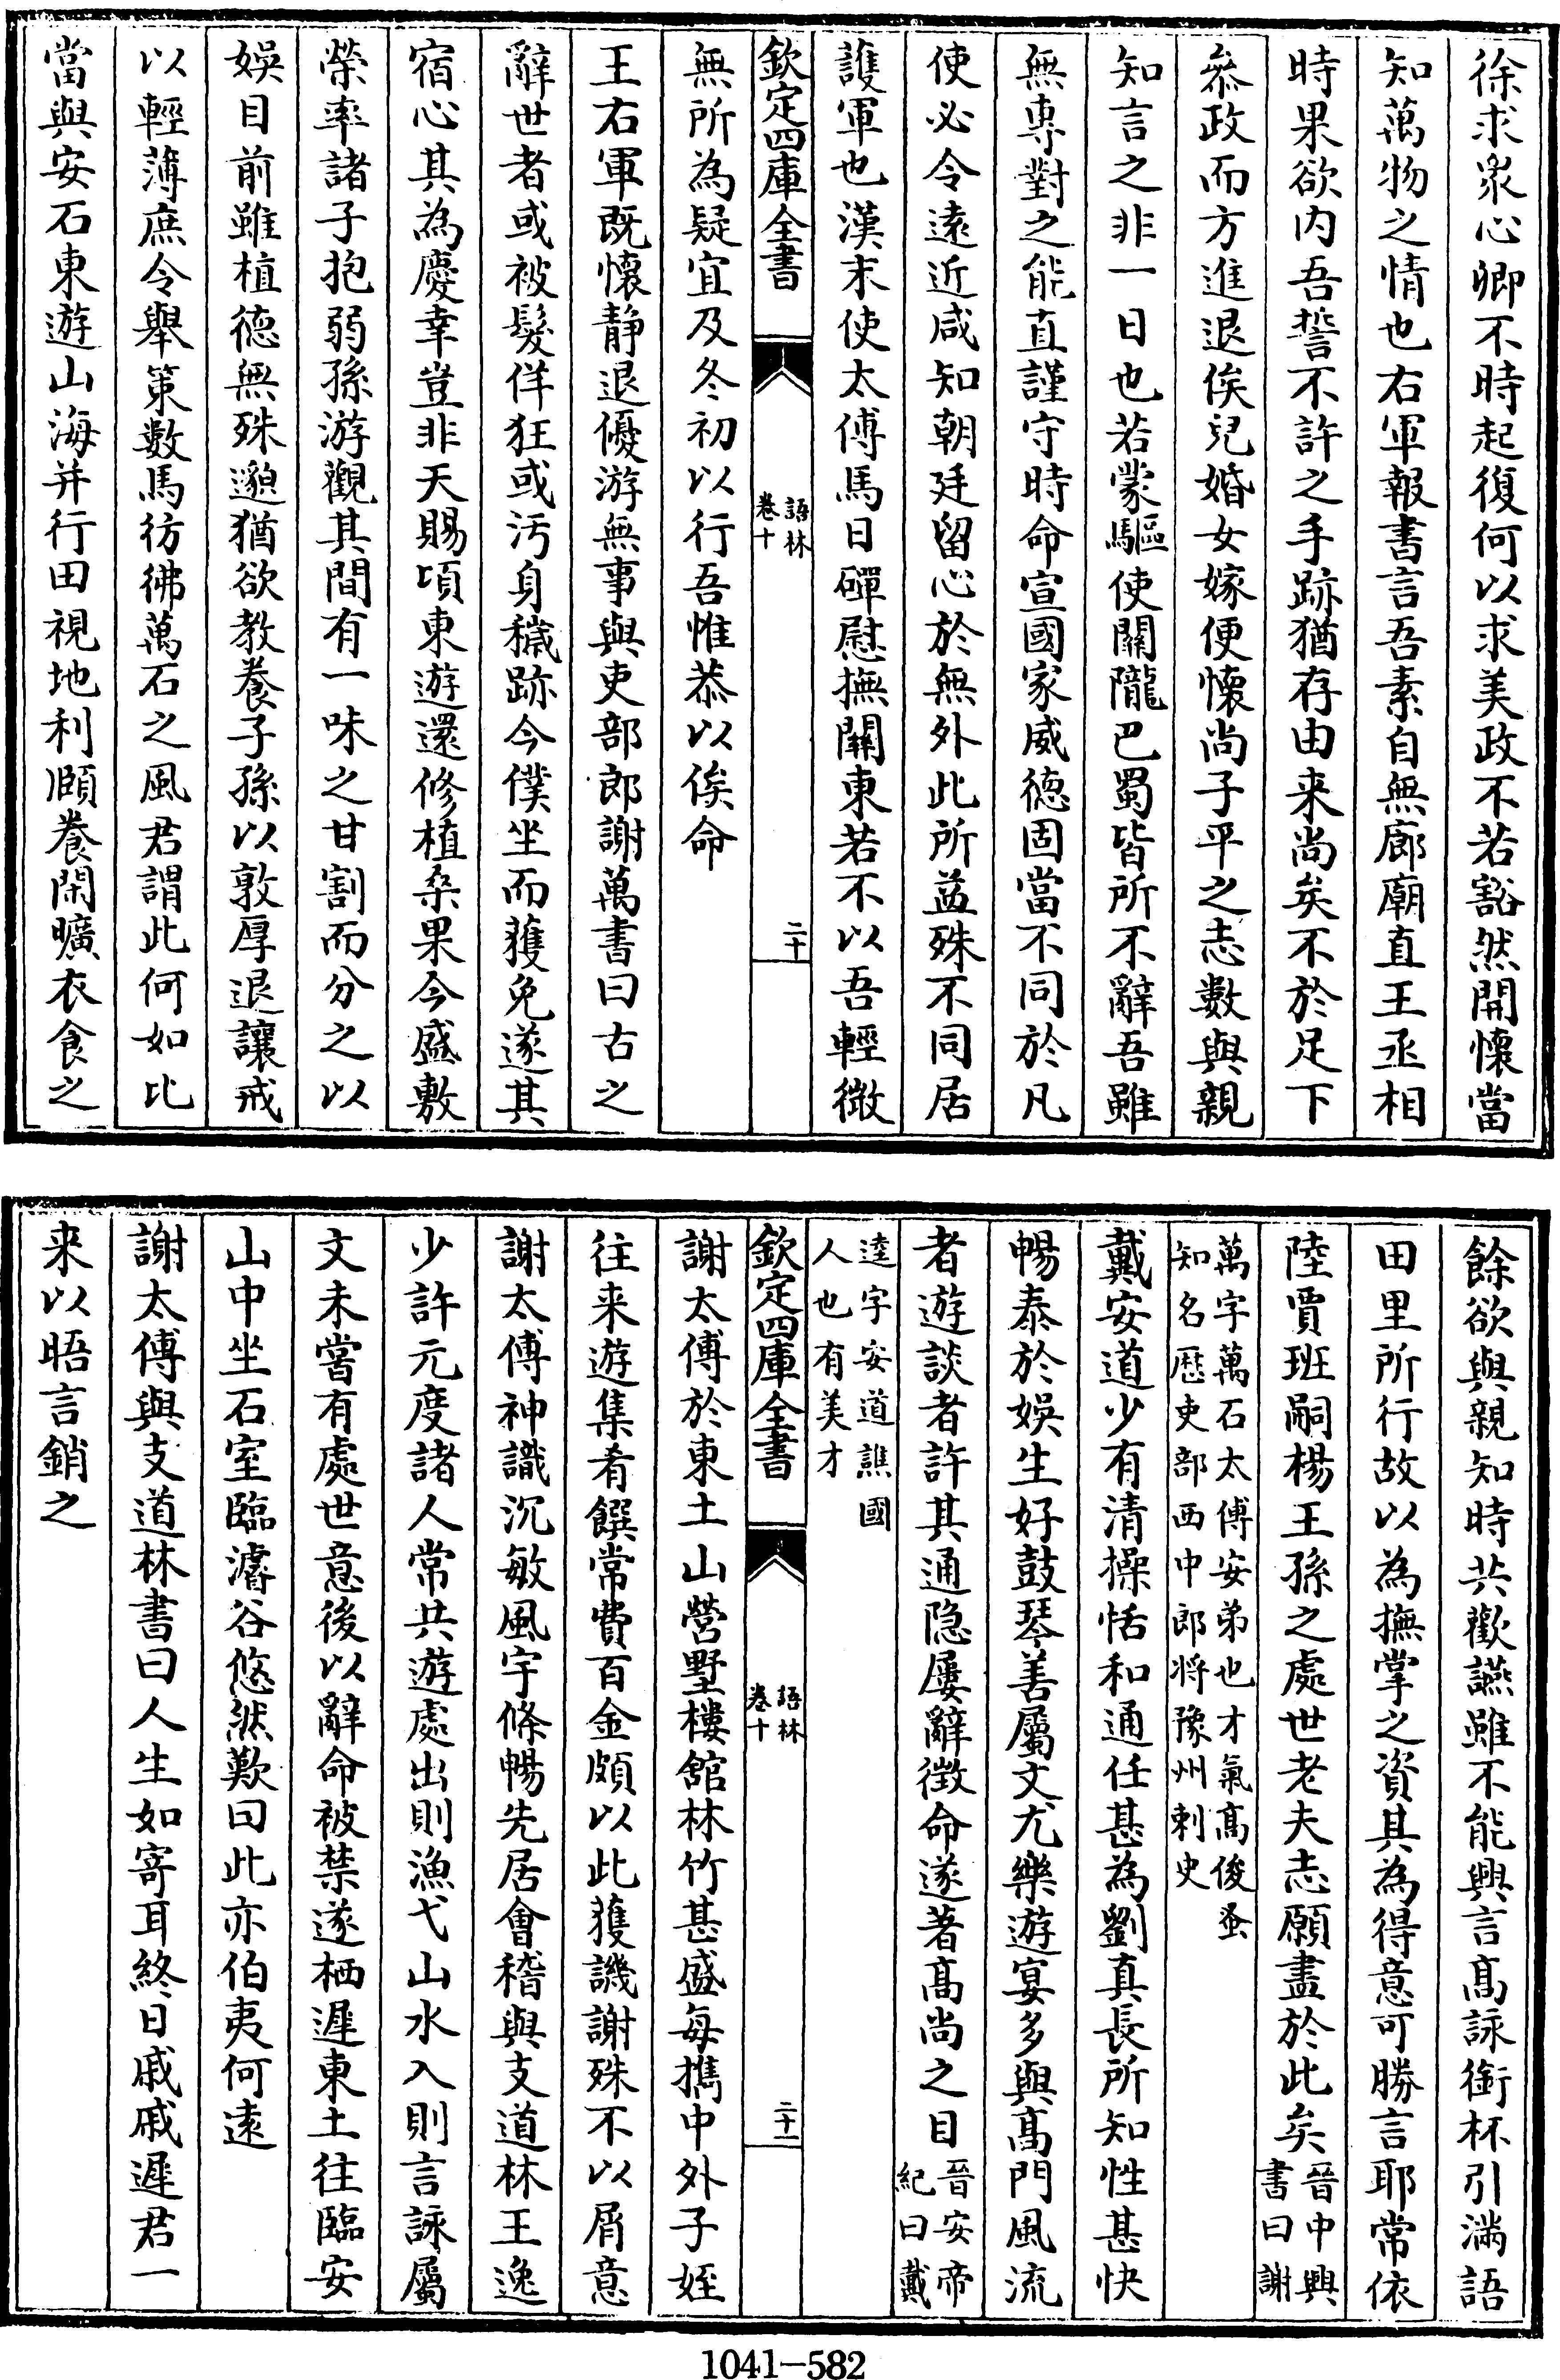 徐求衆心卿不時起復何以求美政不若豁然開懷當
知萬物之情也右軍報書言吾素自無廊廟直王丞相
時果欲內吾誓不許之手跡猶存由来尚矣不於足下
叅政而方進退俟兒婚女嫁便懷尚子平之志數與親
知言之非一日也若蒙驅使關隴巴蜀皆所不辭吾雖
無專對之能直謹守時命宣國家威德固當不同於凡
使必令逺近咸知朝廷留心於無外此所益殊不同居
護軍也漢末使太傅馬日磾慰撫關東若不以吾輕微
欽定四庫全書
語林
卷十
二十
無所為疑宜及冬初以行吾惟恭以俟命
王右軍既懷静退優游無事與吏部郎謝萬書曰古之
辭世者或被髮佯狂或汚身穢跡今僕坐而獲免遂其
宿心其為慶幸豈非天賜頃東遊還修植桑果今盛敷
榮率諸子抱弱孫游觀其間有一味之甘割而分之以
娛目前雖植德無殊邈猶欲教養子孫以敦厚退讓戒
以輕薄庶令舉策數馬彷彿萬石之風君謂此何如比
當與安石東遊山海并行田視地利頤養閑曠衣食之
餘欲與親知時共歡讌雖不能興言髙詠銜杯引滿語
田里所行故以為撫掌之資其為得意可勝言耶常依
陸賈班嗣楊王孫之處世老夫志願盡於此矣晉中興
書曰謝
萬字萬石太傅安弟也才氣髙俊蚤
知名歴吏部西中郎将豫州刺史
戴安道少有清操恬和通任甚為劉真長所知性甚快
暢泰於娛生好鼓琴善屬文尤樂遊宴多與髙門風流
者遊談者許其通隐屢辭徴命遂著髙尚之目晉安帝
紀曰戴
逵字安道譙國
人也有美才
欽定四庫全書
語林
卷十
二十一
謝太傅於東土山營墅樓館林竹甚盛每攜中外子姪
往来遊集肴饌常費百金頗以此獲譏謝殊不以屑意
謝太傅神識沉敏風宇條暢先居會稽與支道林王逸
少許元度諸人常共遊處出則漁弋山水入則言詠屬
文未嘗有處世意後以辭命被禁遂栖遲東土往臨安
山中坐石室臨濬谷悠然歎曰此亦伯夷何逺
謝太傅與支道林書曰人生如寄耳終日戚戚遲君一
来以晤言銷之
1041-582